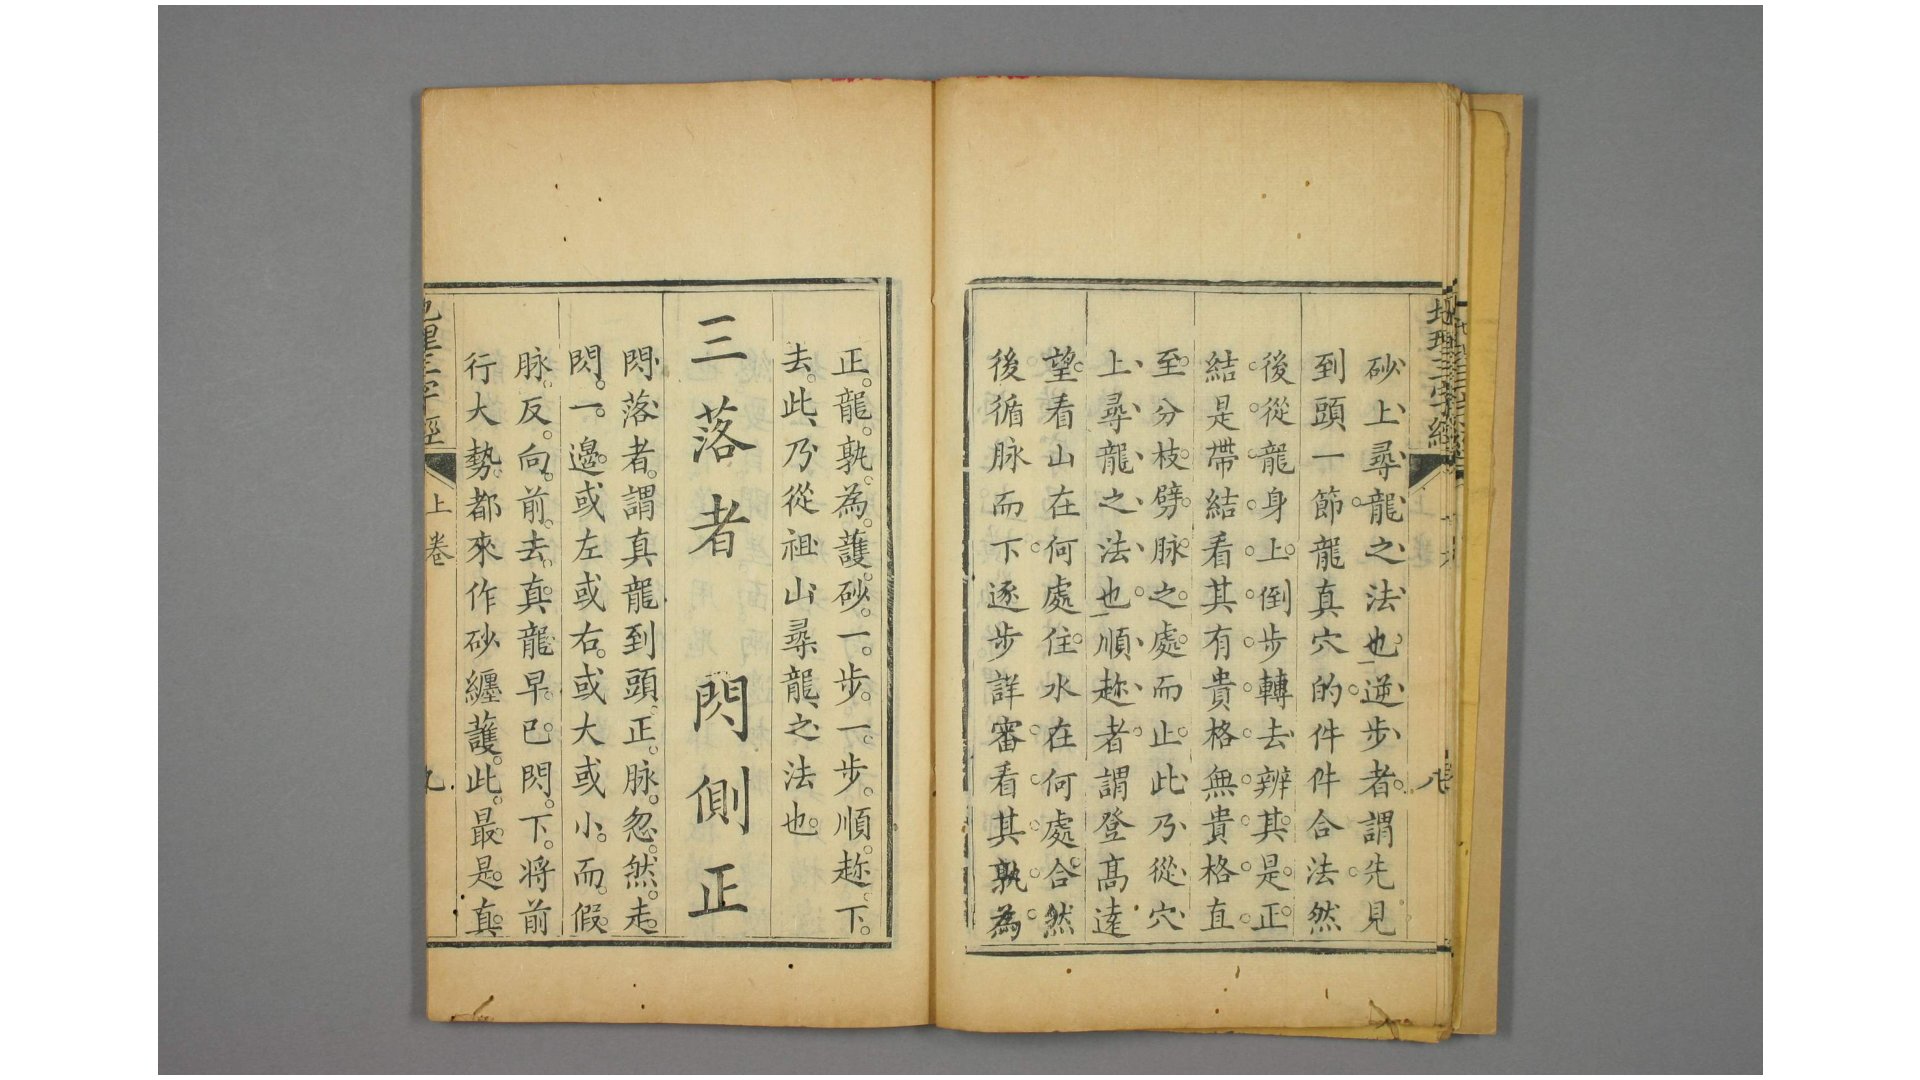 地理三字經
砂上尋龍之法也逆步者謂先見
到頭一節龍真穴的件件合法然
後從龍身上倒步轉去辨其是正
結是帶結看其有貴格無貴格直
至分枝劈脉之處而止此乃從穴
上尋龍之法也順趂者謂登髙逺
望看山在何處住水在何處合然
後循脉而下逐步詳審看其孰為
正龍孰為護砂一步一步順趂下
去此乃從祖山尋龍之法也
三落者 閃側正
閃落者謂真龍到頭正脉忽然走
閃一邊或左或右或大或小而假
脉反向前去真龍早已閃下將前
行大勢都來作砂纒護此最是真
地理三字經 上卷 九